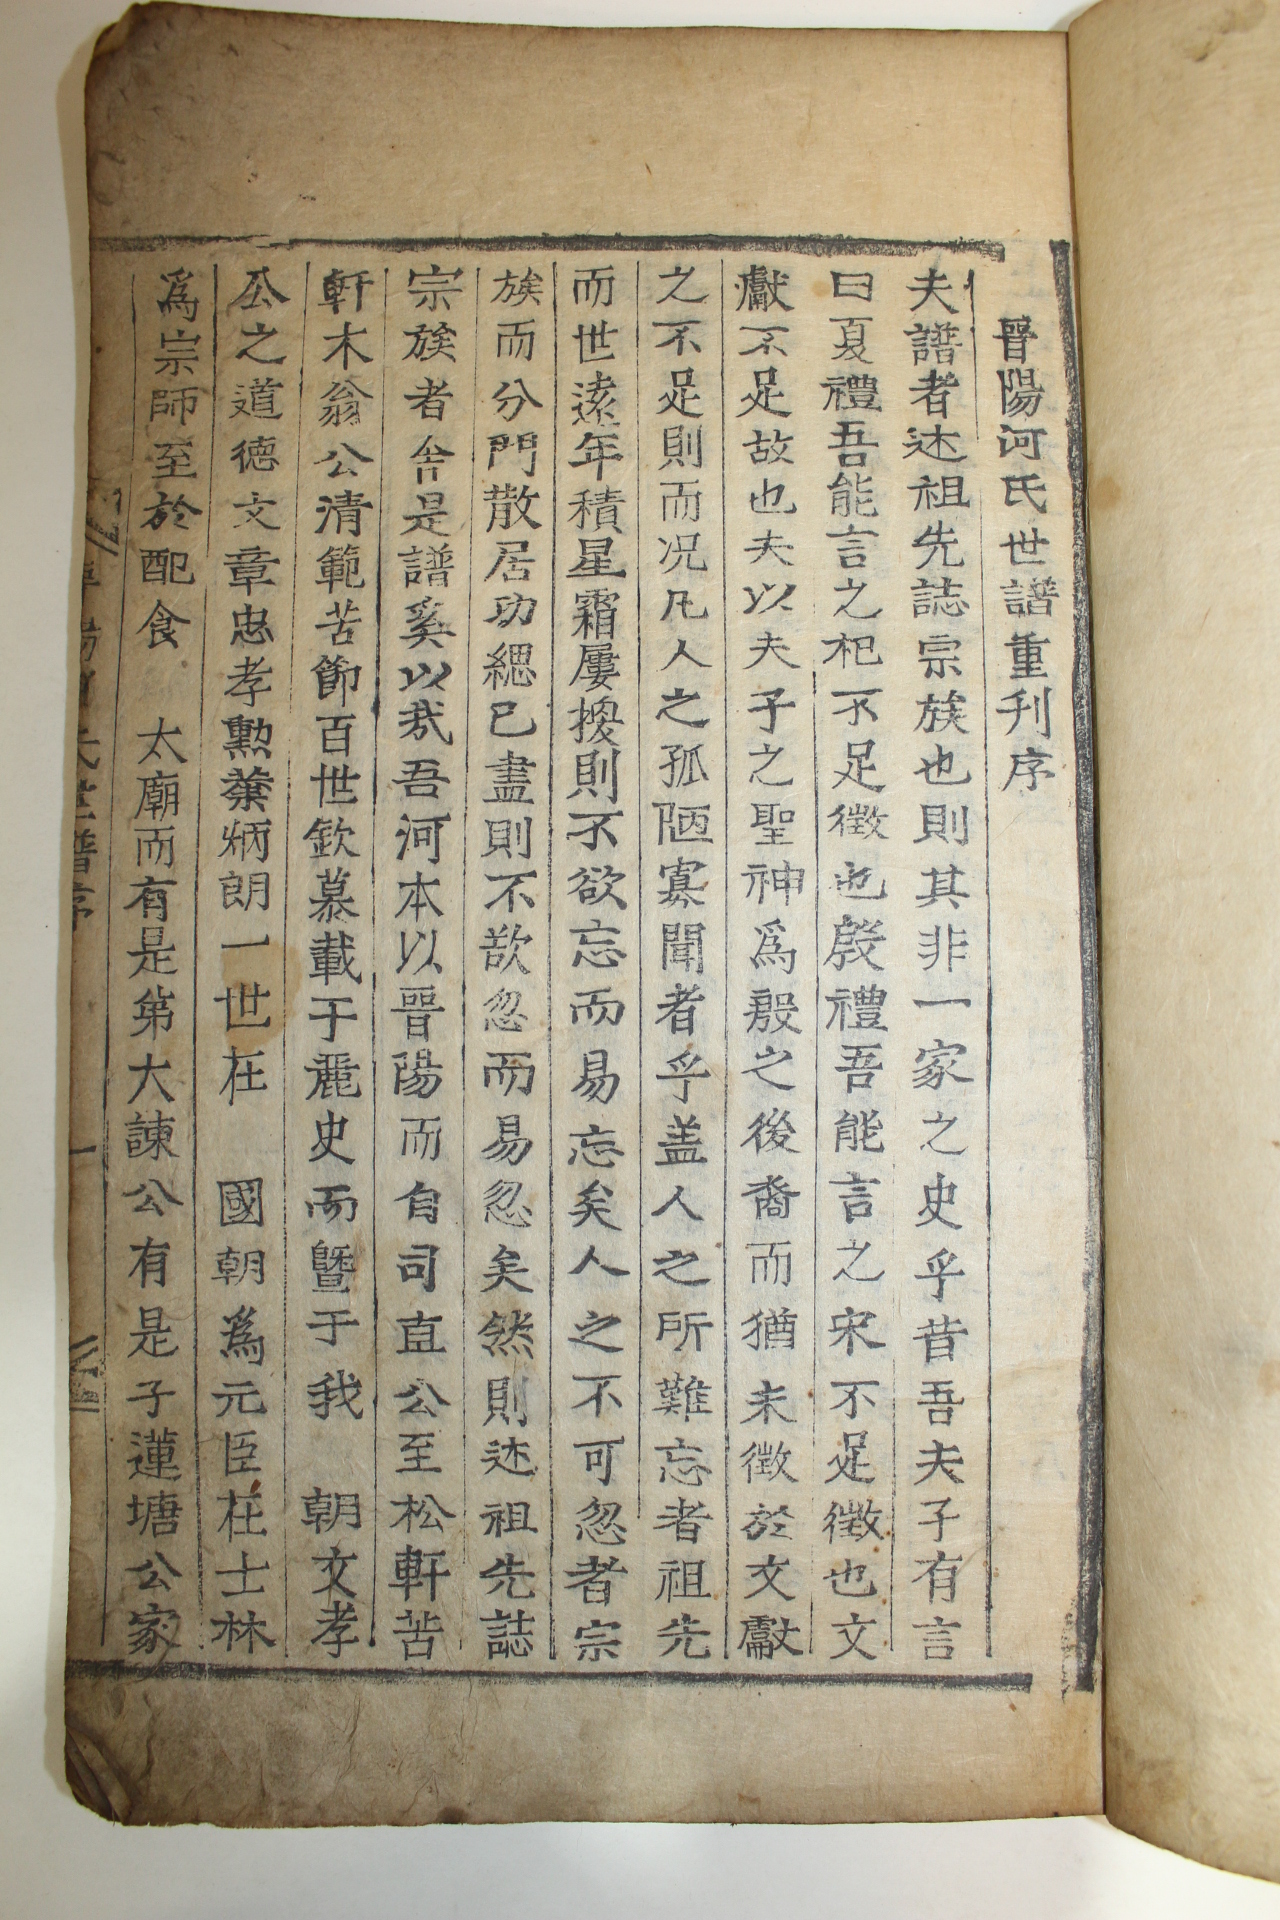 晉陽河氏世譜重刋序
夫譜者述祖先誌宗族也則其非一家之史乎昔吾夫子有言
曰夏禮吾能言之杞不足徵也殷禮吾能言之宋不足徵也文
獻不足故也夫以夫子之聖神爲殷之後裔而猶未徵於文獻
之不足則而况凡人之孤陋寡聞者乎盖人之所難忘者祖先
而世遠年積星霜屢換則不欲忘而易忘矣人之不可忽者宗
族而分門散居功緦已盡則不欲忽而易忽矣然則述祖先誌
宗族者舍是譜奚以㢤吾河本以晉陽而自司直公至松軒苦
軒木翁公清範苦節百世欽慕載于麗史而曁于我 朝文孝
公之道德文章忠孝勳業炳朗一世在 國朝爲元臣在士林
爲宗師至於配食 太廟而有是第大諫公有是子蓮塘公家
陽河氏世譜序 一